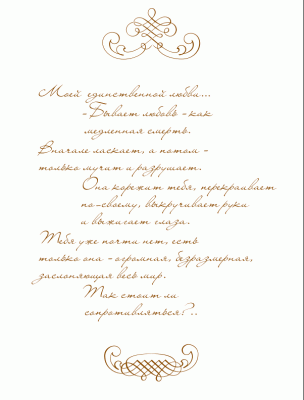 Моей единственной любви...
-Бывает любовь - как
медленная смерть.
Вначале ласкает, а потом -
только мучит и разрушает.
Она корежит тебя, перекраивает
по-своему, выкручивает руки
и выжигает глаза.
Тебя уже почти нет, есть
только она - огромная, безразмерная,
заслоняющая весь мир.
Так стоит ли
сопротивляться?..